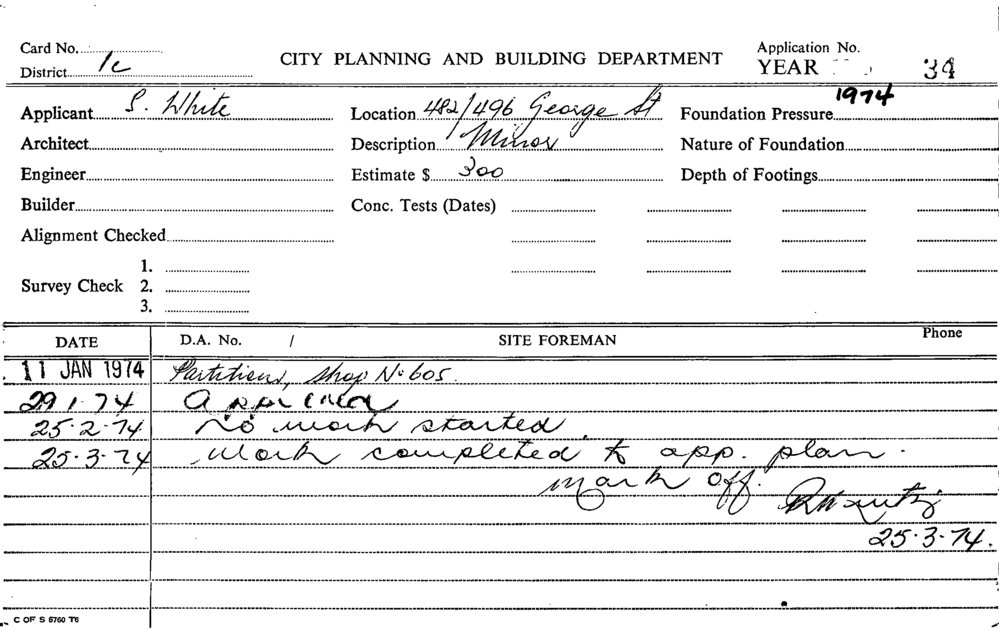 Card No.
District 1c
CITY PLANNING AND BUILDING DEPARTMENT
Application No.
YEAR 34
1974
Applicant S. White
Location 482/496 George St
Foundation Pressure
Architect
Description Minor
Nature of Foundation
Engineer
Estimate $ 300
Depth of Footings
Builder
Conc. Tests (Dates)
Alignment Checked
Survey Check
1.
2.
3.
DATE D.A. No. / SITE FOREMAN Phone
11 JAN 1974 Partitions, shop No 605.
29.1.74 Approved
25.2.74 No work started.
25.3.74 Work completed to app. plan.
mark off.
25.3.74.
C OF S 6760 T6